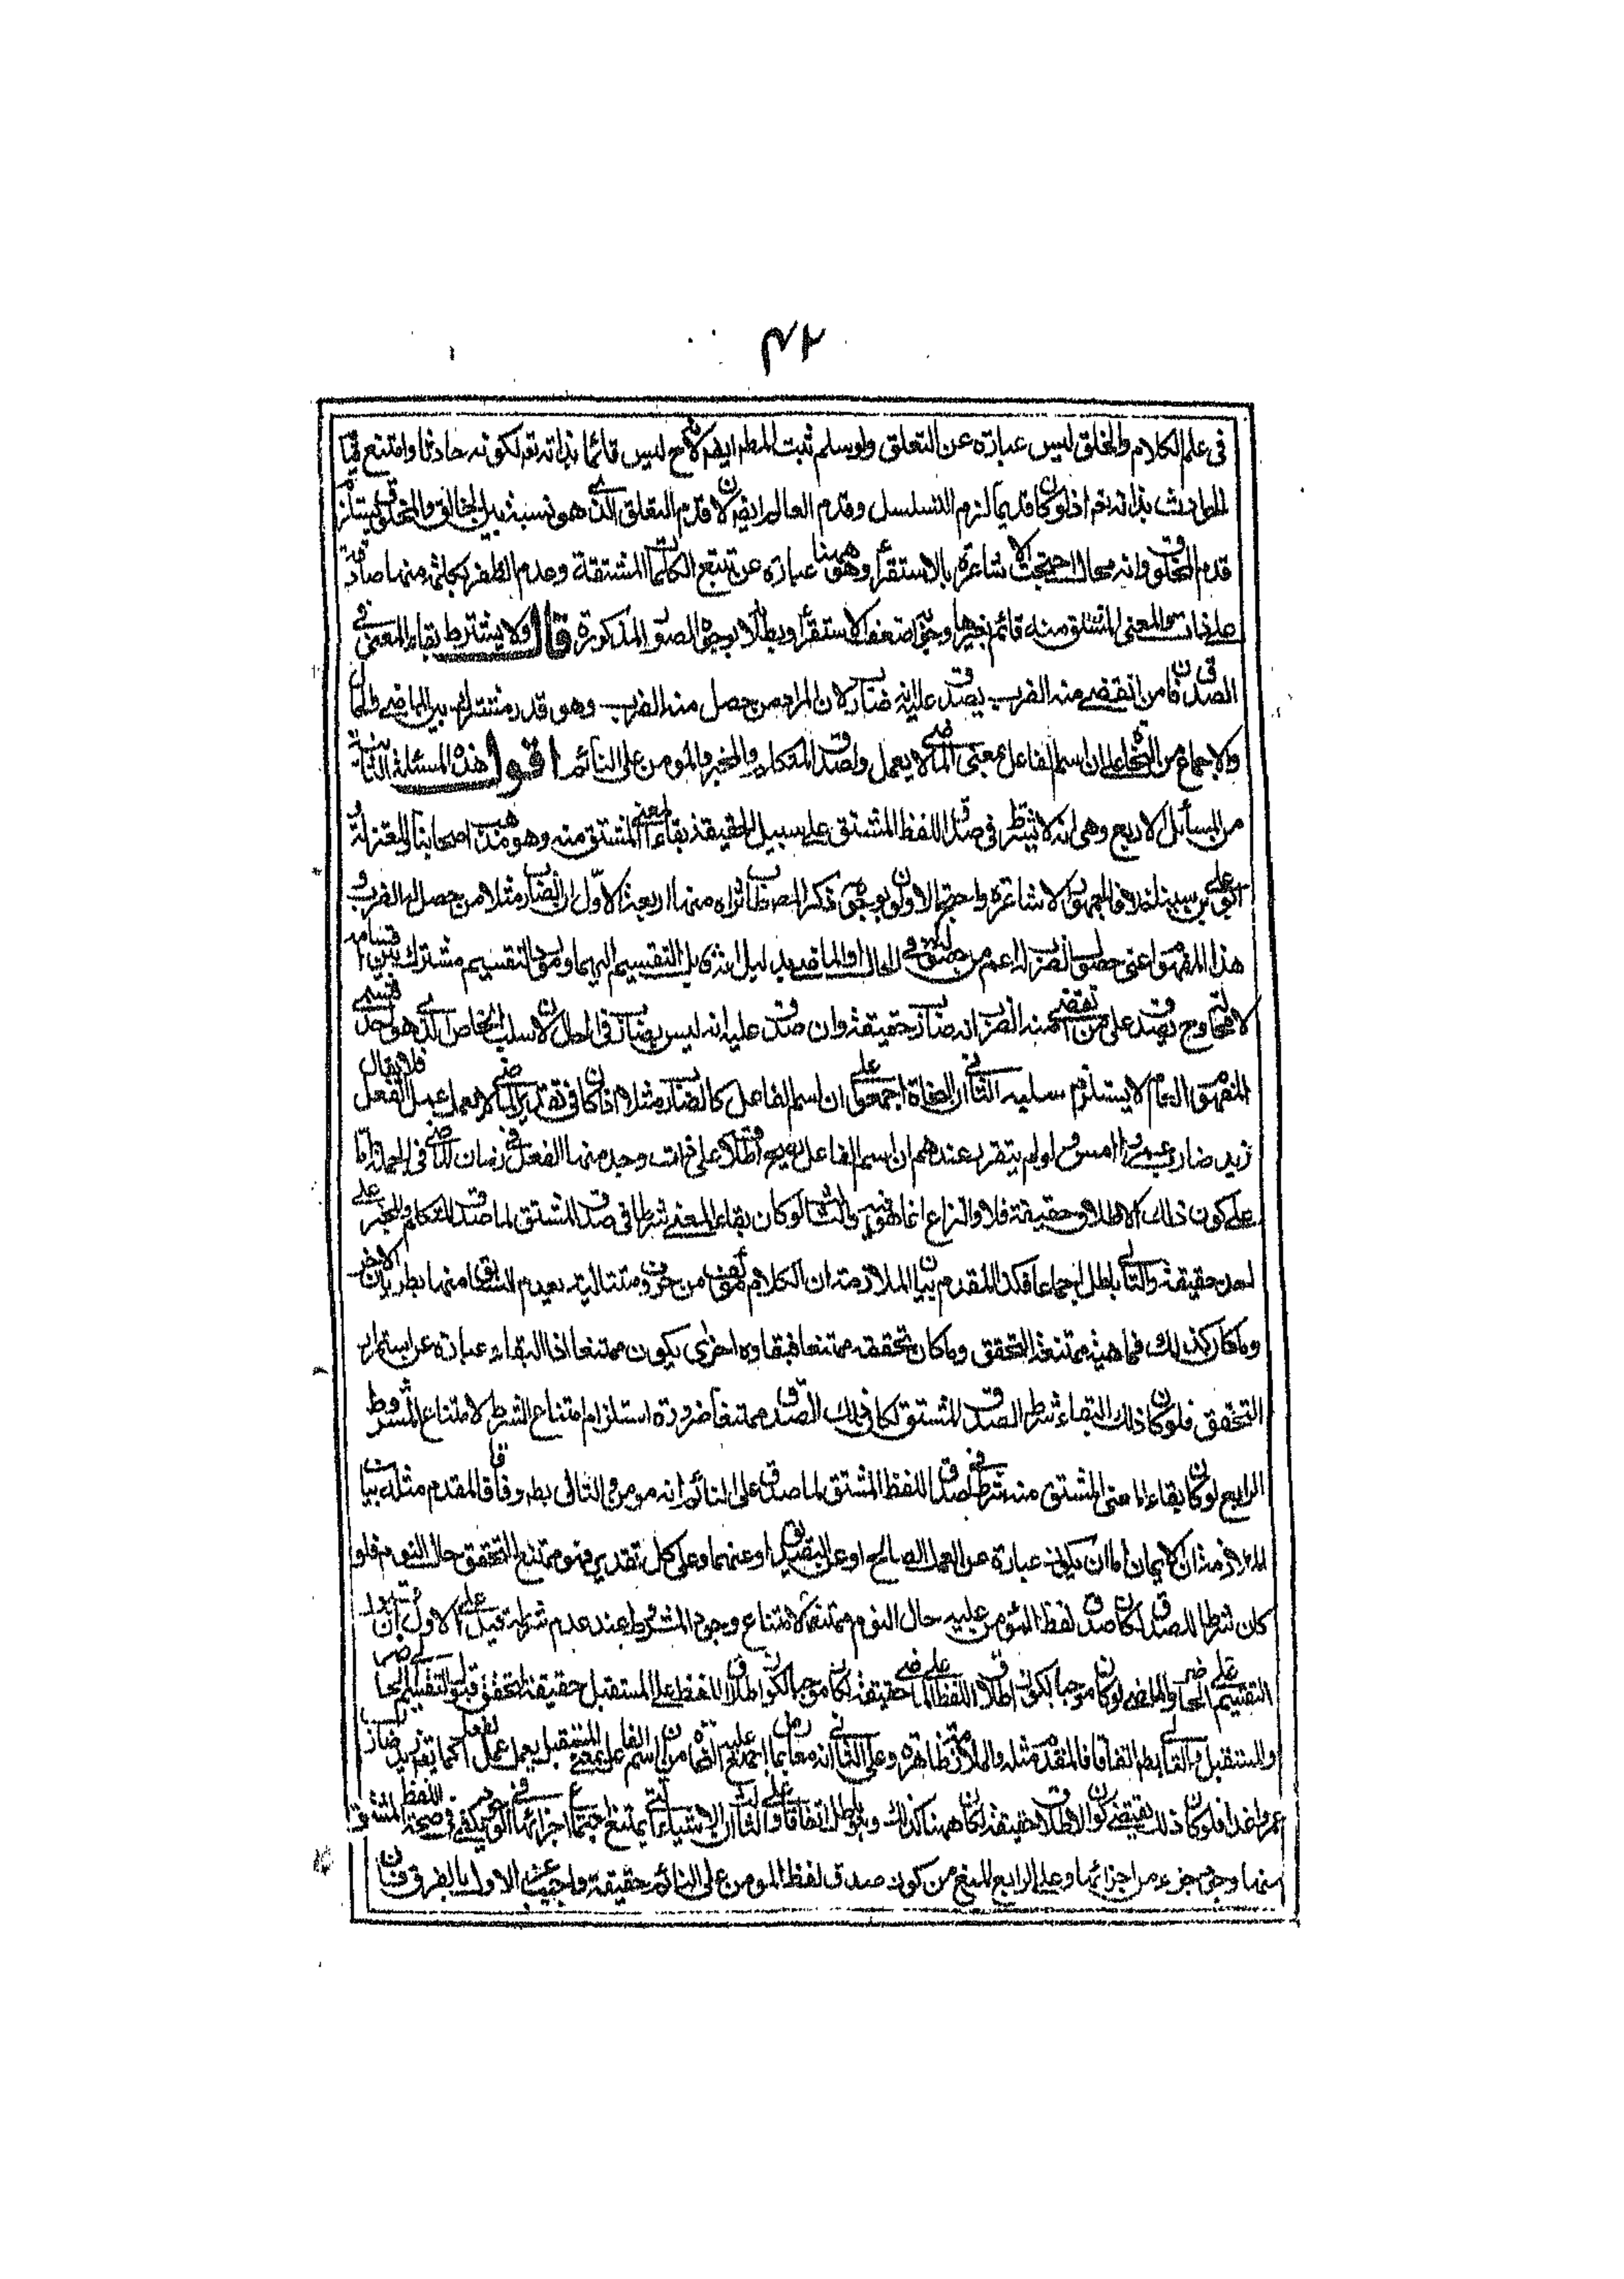 ٤٢
في علم الكلام والخلق ليس عبارة عن التعلق ولو سلم ثبت المط ايضا لانه ح ليس قائما بذاته تعم لكونه حادثا وامتنع قيام
الحوادث بذاته تعم اذ لو كان قديما لزم التسلسل وقدم العالم ايضا لان قدم التعلق الذي هو نسبة بين الخالق والمخلوق يستلزم
قدم المخلوق وانه محال احتجت الاشاعرة بالاستقراء وهو هيهنا عبارة عن تتبع الكلمات المشتقة وعدم الظفر بكلمة منها صادقة
على ذات والمعنى المشتق منه قائم بغيرها وضعف الاستقراء وبطلانه بوجوه الصور المذكورة قال ولا يشترط بقاء المعنى في
الصدق فان من انقضى منه الضرب يصدق عليه انه ضارب لان المراد من حصل منه الضرب وهو قدر مشترك بين الماضي والحال
والاجماع من النحاة على ان اسم الفاعل بمعنى الماضي لا يعمل ولصدق المتكلم والمخبر والمومن على النائم اقول هذه المسئلة الثانية
من المسائل الاربع وهي انه لا يشترط في صدق اللفظ المشتق على سبيل الحقيقة بقاء المعنى المشتق منه وهو مذهب اصحابنا والمعتزلة
وابي علي بن سينا خلافا لجمهور الاشاعرة واحتج الاولون بوجوه ذكر المصط ثراه منها اربعة الاول ان الضارب مثلا من حصل له الضرب و
هذا المفهوم اعني حصول الضرب له اعم من حصوله في الحال او الماضي بدليل انه يقبل التقسيم اليهما ومورد التقسيم مشترك بين اقسامه
لا محالة وح يصدق على من انقضى منه الضرب انه ضارب حقيقة وان صدق عليه انه ليس بضارب في الحال لان سلب الخاص الذي هو احد قسمي
المفهوم العام لا يستلزم سلبه الثاني ان النحاة اجمعوا على ان اسم الفاعل كالضارب مثلا اذا كان في تقدير الماضي لا يعمل عمل الفعل فلا يقال
زيد ضارب عمروا امس ولو لم يتقرر عندهم ان اسم الفاعل يصح اطلاقه على ذات وجد منها الفعل في زمان الماضي في الجملة اما
على كون ذلك الاطلاق حقيقة فلا والنزاع انما هو فيه والثالث لو كان بقاء المعنى شرطا في صدق المشتق لما صدق المتكلم والمخبر على
احد حقيقة والتالي باطل اجماعا فكذا المقدم بيان الملازمة ان الكلام مؤلف من حروف متتالية بعدم السابق منها بطريان الاخر
وما كان كذلك فماهيته ممتنعة التحقق وما كان تحققه ممتنعا فبقاؤه اخرى يكون ممتنعا اذ البقاء عبارة عن استمرار
التحقق فلو كان ذلك البقاء شرط الصدق المشتق لكان ذلك الصدق ممتنعا ضرورة استلزام امتناع الشرط لامتناع المشروط
الرابع لو كان بقاء المعنى المشتق منه شرطا في صدق اللفظ المشتق لما صدق على النائم انه مومن والتالي بط وفاقا فالمقدم مثله بيان
الملازمة ان الايمان اما ان يكون عبارة عن العمل الصالح او عن التصديق او عنهما وعلى كل تقدير فهو ممتنع التحقق حال النوم فلو
كان شرطا للصدق لكان صدق لفظ المؤمن عليه حال النوم ممتنعا لامتناع وجود المشروط عند عدم شرطه قيل على الاول ان قبول
التقسيم الى الحال والماضي لو كان موجبا لكون اطلاق اللفظ على الماضي حقيقة لكان موجبا لكون اطلاق اللفظ على المستقبل حقيقة لتحقق قبول التقسيم الى الحال
والمستقبل والتالي بط اتفاقا فالمقدم مثله والملازمة ظاهرة وعلى الثاني انه معارض بما اجمع عليه النحاة من ان اسم الفاعل بمعنى المستقبل يعمل عمل الفعل كما تقول زيد ضارب
عمروا غدا فلو كان ذلك يقتضي كون الاطلاق حقيقة لكان هيهنا كذلك وهو باطل اتفاقا وعلى الثالث ان الاشياء التي يمتنع اجتماع اجزائها في الوجود يكفي في صحة اللفظ المشتق
منها وجود جزء من اجزائها وعلى الرابع المنع من كون صدق لفظ المومن على النائم حقيقة واجيب عن الاول بالفرق فان